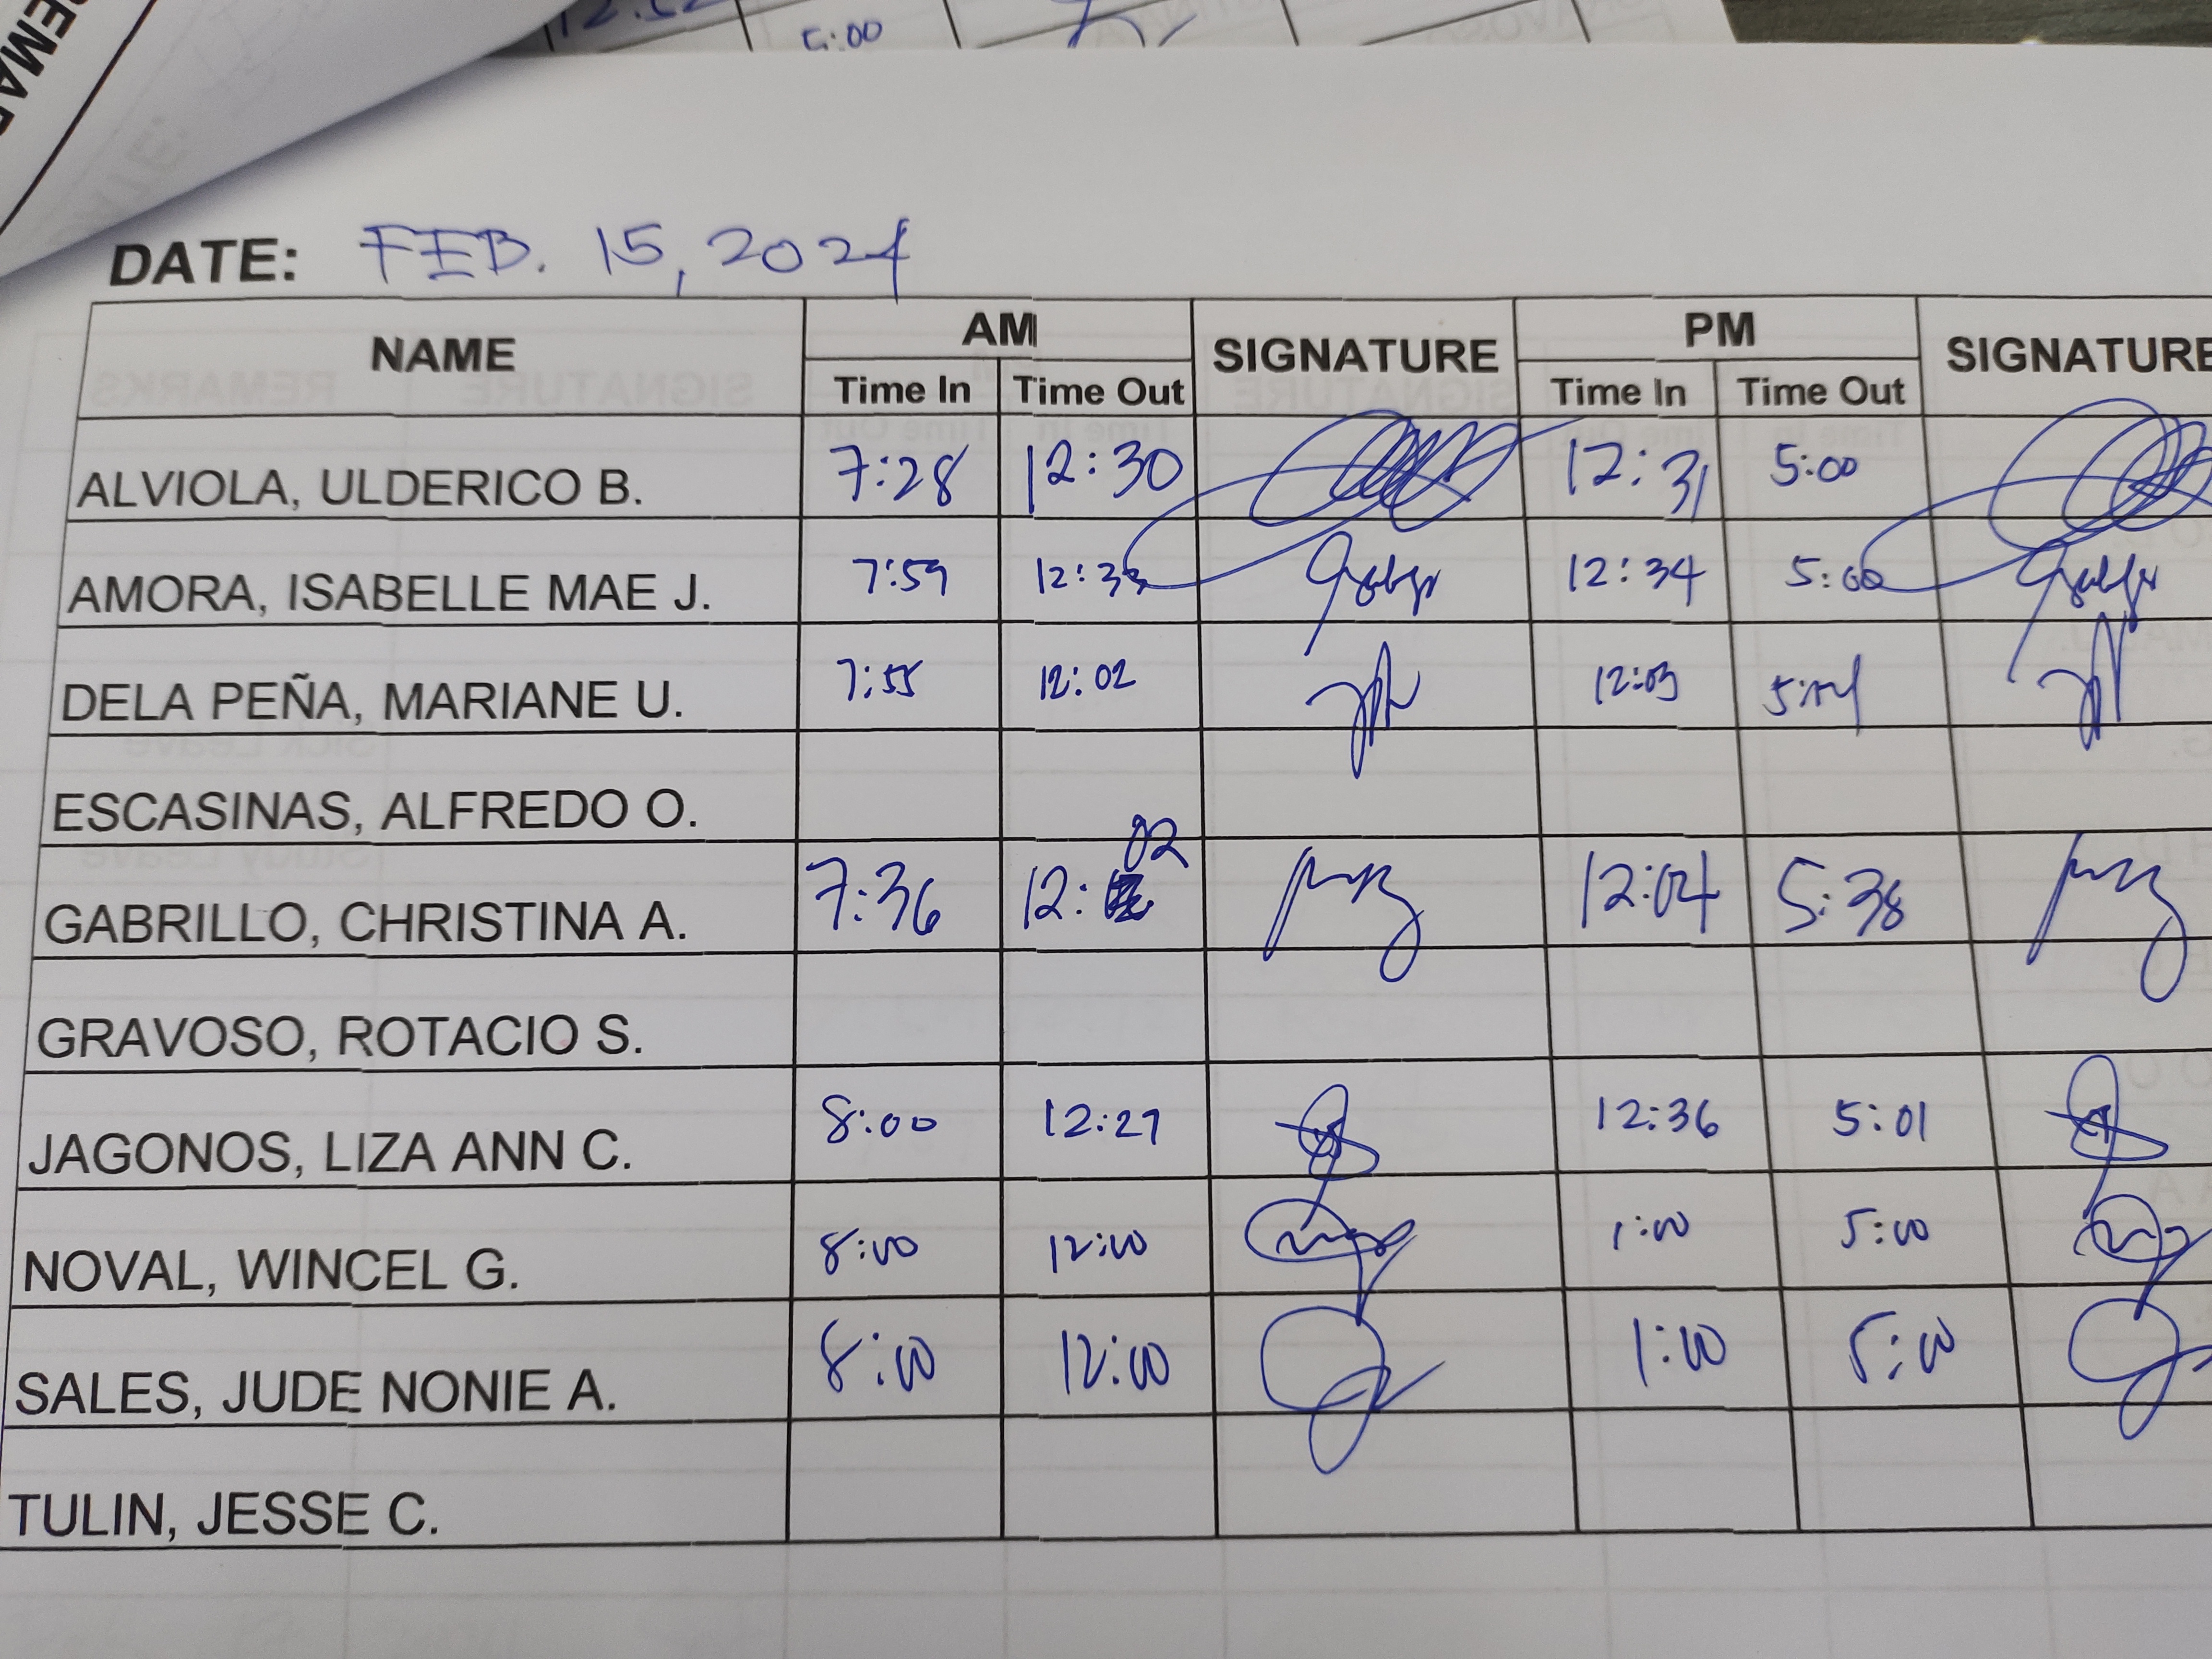 5:00
DATE: FEB. 15, 2024
NAME AM SIGNATURE PM SIGNATURE
Time In Time Out Time In Time Out
ALVIOLA, ULDERICO B. 7:28 12:30 12:31 5:00
AMORA, ISABELLE MAE J. 7:59 12:33 12:34 5:00
DELA PEÑA, MARIANE U. 7:55 12:02 12:03
ESCASINAS, ALFREDO O.
02
GABRILLO, CHRISTINA A. 7:36 12: 12:04 5:38
GRAVOSO, ROTACIO S.
JAGONOS, LIZA ANN C. 8:00 12:27 12:36 5:01
NOVAL, WINCEL G. 8:00 12:00 1:00 5:00
SALES, JUDE NONIE A. 8:00 12:00 1:00 5:00
TULIN, JESSE C.